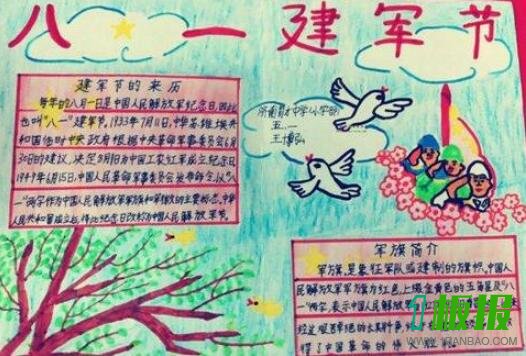 八一建军节
建军节的来历
每年的八月一日是中国人民解放军纪念日,因此
也叫"八一"建军节。1933年7月11日,中华苏维埃共
和国临时中央政府根据中央革命军事委员会6月
30日的建议,决定8月1日为中国工农红军成立纪念日。
1949年6月15日,中国人民革命军事委员会发布命令,以"八
一"两字作为中国人民解放军军旗和军徽的主要标志。中华
人民共和国成立后,将此纪念日改称为中国人民解放军建军节。
济南育才中学(小学部)
五.一
王博弘
军旗简介
军旗,是象征军队或建制的旗帜。中国人
民解放军军旗为红色上缀金黄色的五角星及"八一
"两字,表示中国人民解放